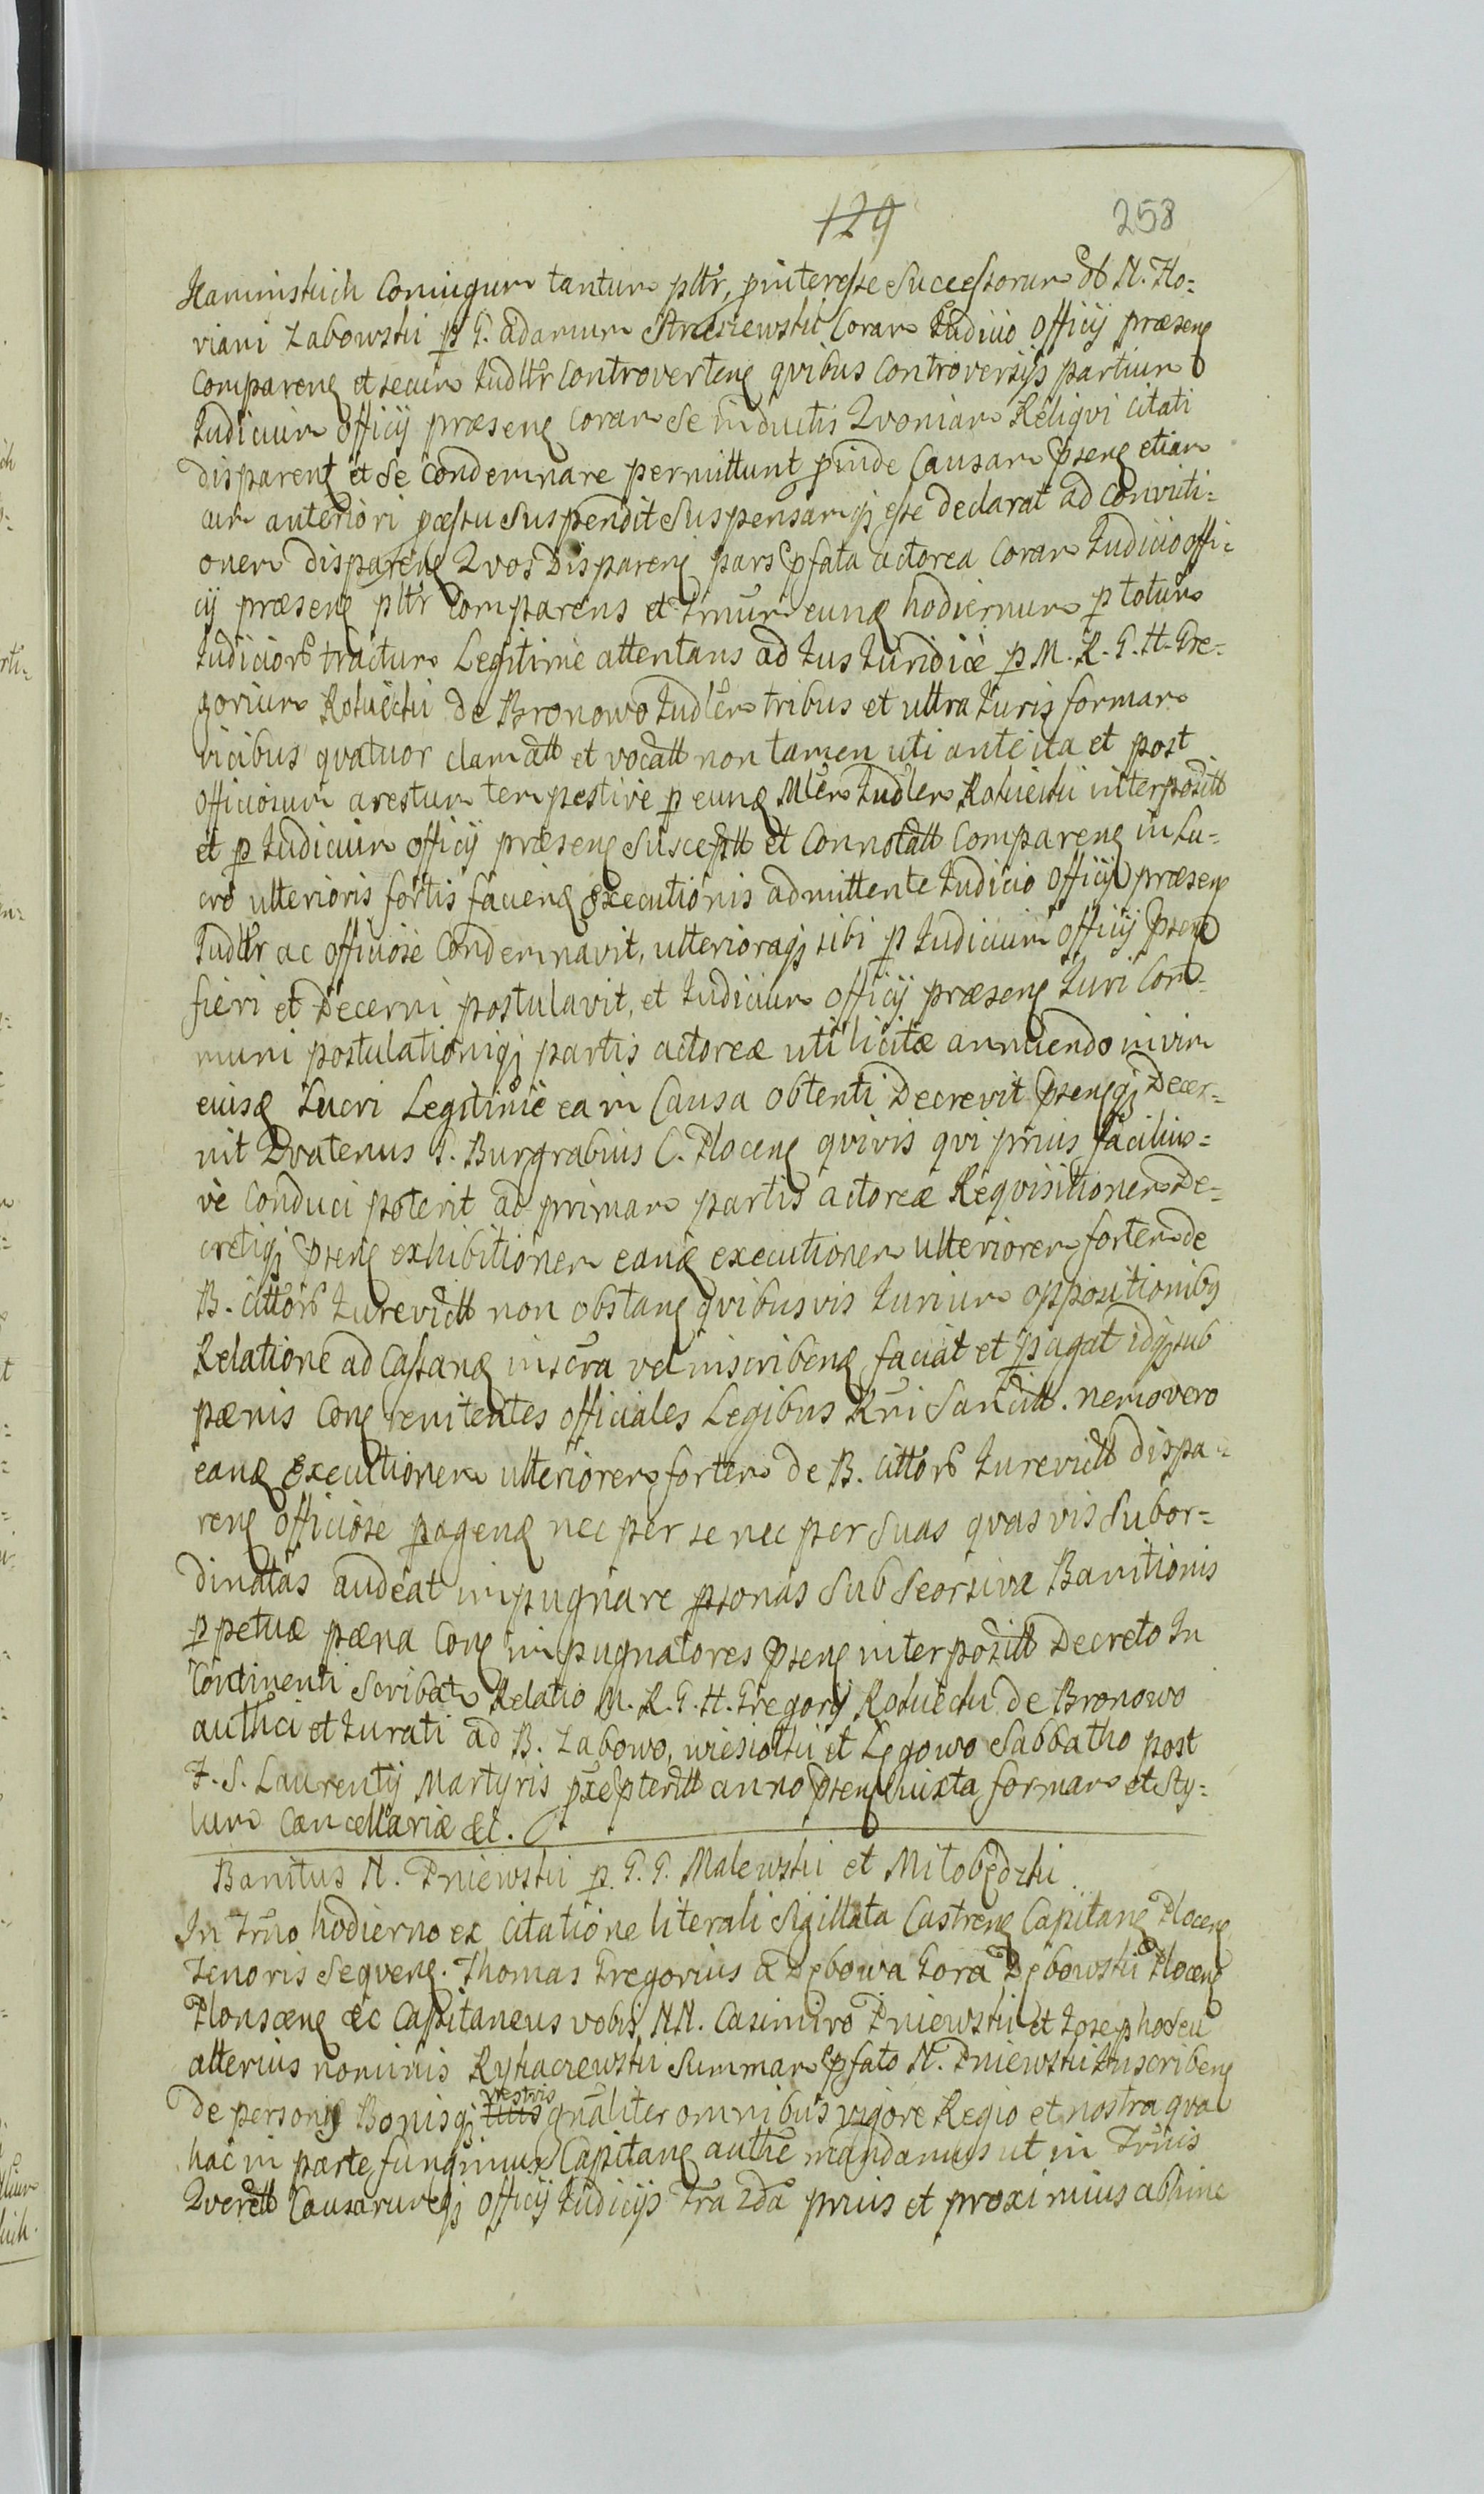 129 258
Kaminskich Coniugum tantum pltr, pinteresse Successorum ol. N. Flo-
riani Zabowski p G. Adamum Strasiewski Coram Iudicio Officij præsens
Comparens et secum Iudltr Controvertens qvibus Controversijs partium
Iudicium Officij præsens Coram Se inductis Qvoniam Reliqvi citati
disparent et Se Condemnare permittunt pinde Causam pseng etiam
cum anteriori pcessu Suspendit Suspensamqj esse Declarat ad Convicti-
onem disparens Qvos Disparens pars pfata actorea Coram Iudicio offi-
cij præseng pltr Comparens et Trnum eung hodiernum p totum
Iudiciorum tractum Legitime attentans ad Ius Iuridice p M. R. G. H. Gre-
gorium Rokiicki de Bronowo Iudlem tribus et ultra Iuris formam
vicibus qvatuor clamatt et vocatt non tamen uti ante ita et post
officiosum arestum tempestive p eung Mlem Iudlem Rokiicki interpositt
et p Iudicium Officij præseng Susceptt et Connotatt Compareng in Lu-
cro ulterioris fortis facieng Executionis admittente Iudicio Officij præseng
Iudltr ac Officiose Condemnavit, ulterioraqj sibi p Iudicium Officij pseng
fieri et Decerni postulavit, et Iudicium Officij præseng Iuri Com-
muni postulationiqj partis actoreæ uti licitæ annuendo in vim
eiusq Lucri Legitime ea in Causa obtenti Decrevit psengqj Decer-
nit Qvatenus G. Burgrabius C. Ploceng qvivis qvi prius facilius-
ve Conduci poterit ad primam partis actoreæ Reqvisitionem De-
cretiqj pseng exhibitionem eang executionem ulteriorem fortem de
B. cittorum Iurevictt non obstang qvibusvis Iurium oppositionibg
Relatione ad Cassang inscra vel inscribeng faciat et pagat idqj sub
pænis Cong renitentes officiales Legibus Rni Sancitt. nemo vero
eang Executionem ulteriorem fortem de B. cittorum Iurevictt dispa-
reng officiose pageng nec per se nec per suas qvasvis Subor-
dinatas audeat impugnare psonas Sub Seorsivæ Banitionis
ppetuæ pæna Cong impugnatores pseng interpositt Decreto In
Continenti Scribatr Relatio M. R. G. H. Gregorij Rokiicki de Bronowo
authci et Iurati ad B. Zabowo, wiesiołki et Łęgowo Sabbatho post
F. S. Laurentij Martyris pxe pteritt anno pseng iuxta formam et Sty-
lum Cancellariæ &c.
Banitus N. Pniewski p. G. G. Malewski et Miłobędzki
In Trno hodierno ex Citatione literali Sigillata Castreng Capitang Ploceng
Tenoris Seqveng. Thomas Gregorius a Dębowa Gora Dębowski Ploceng
Plonsceng &c Capitaneus vobis NN. Casimiro Pniewski et Iosepho seu
alterius nominis Rykaczewski Summam pfato N. Pniewski Inscribeng
De personis Bonisqj tuis vestris gnaliter omnibus vigore Regio et nostra qva
hac in parte fungimur Capitang authe mandamus ut in Trnis
Qverell Causarumqj Officij Iudicijs Fra 2da prius et proximius abhinc